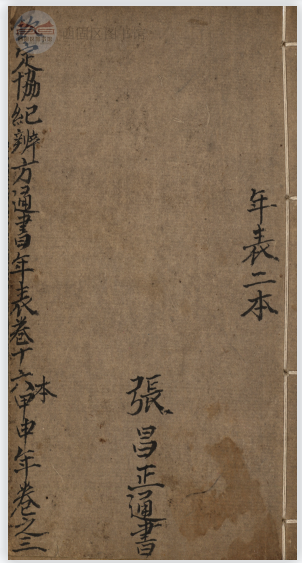 年表二本
張昌正通書
欽定協紀辨方通書年表卷十六甲申年卷之三
本